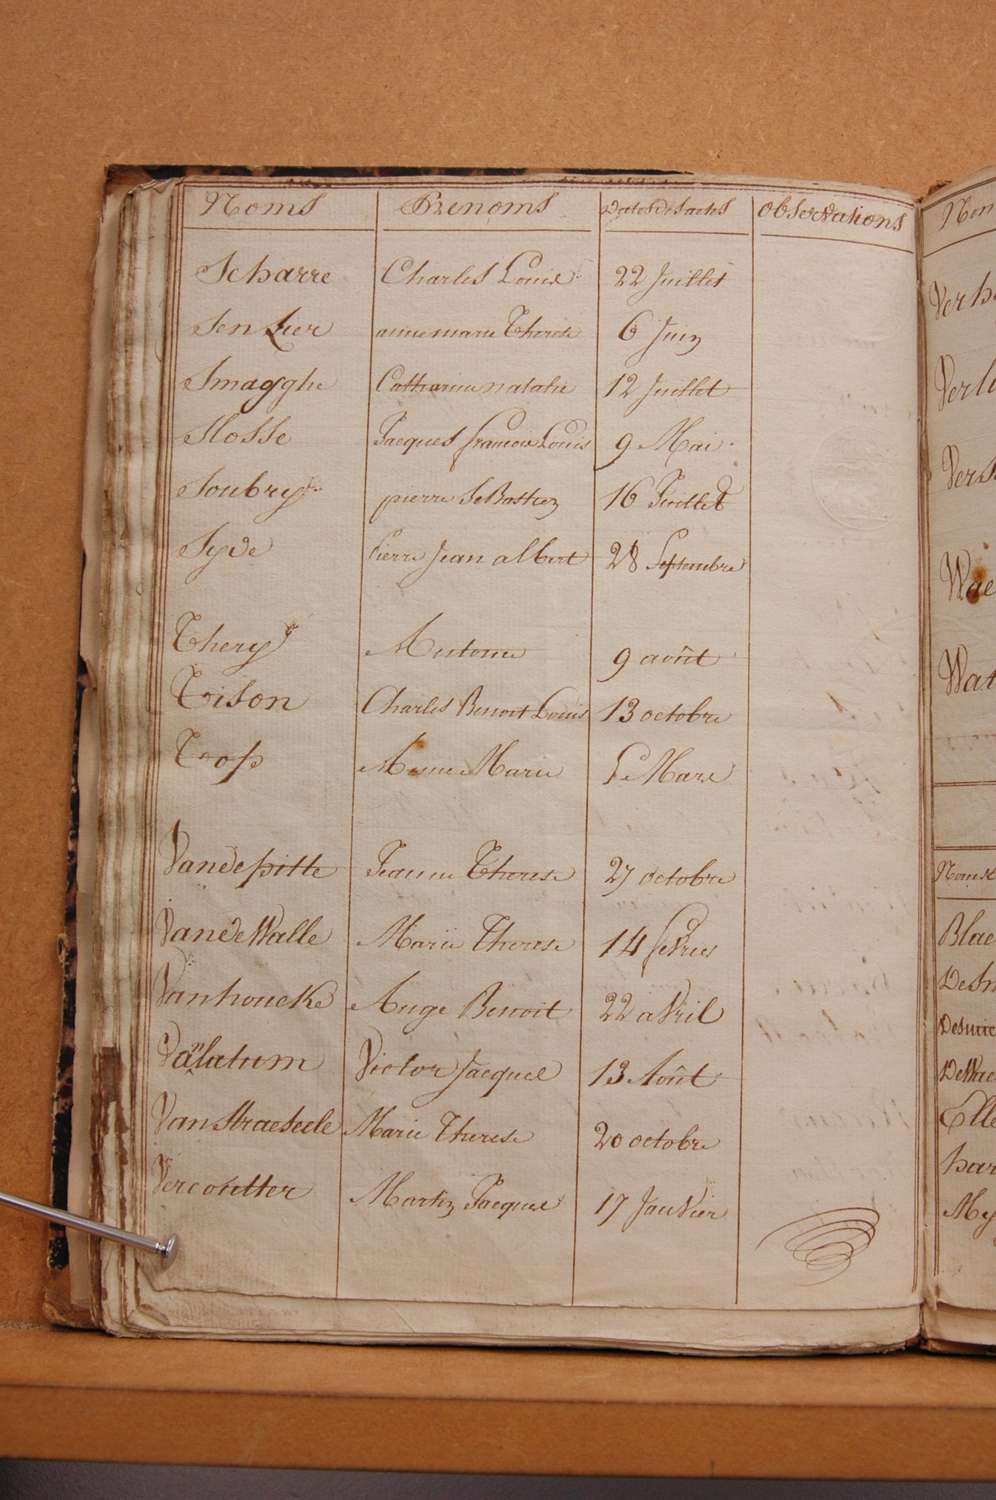 Noms Prenoms Dates des actes Observations
Scharre Charles Louis 22 Juillet
Senlier anne marie Therese 6 Juin
Smagghe Catharine natalie 12 Juillet
Slosse Jacques françois Louis 9 Mai
Soubry pierre Sebastien 16 Juillet
Syde Pierre Jean albert 28 Septembre
Thery Antoine 9 août
Toison Charles Benoit Louis 13 octobre
Trop Anne Marie 5 Mars
Vandepitte Jeanne Therese 27 octobre
VandeWalle Marie Therese 14 fevrier
Vanhoucke Ange Benoit 22 avril
Valatum Victor Jacques 13 Août
Vanstraeseele Marie Therese 20 octobre
Vercoutter Martin Jacques 17 Janvier
Nom
Verh
Verl
Vers
Wae
Wat
Noms
Blae
Desm
DeWae
Elle
har
My